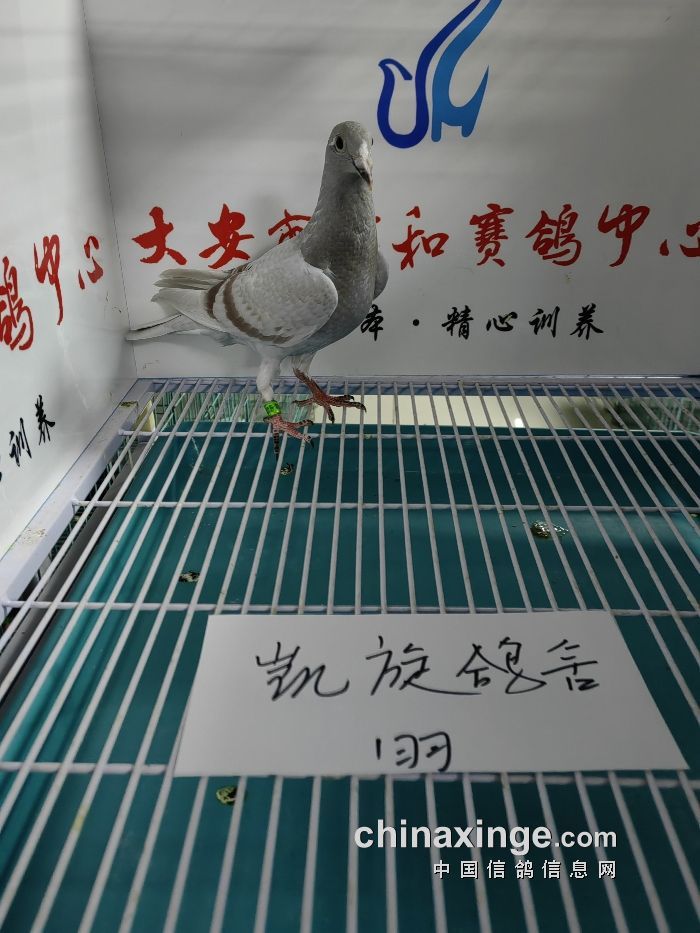 大安市 和赛鸽中心
本·精心训养
鸽中心
训养
凯旋鸽舍
1羽
chinaxinge.com
中国信鸽信息网